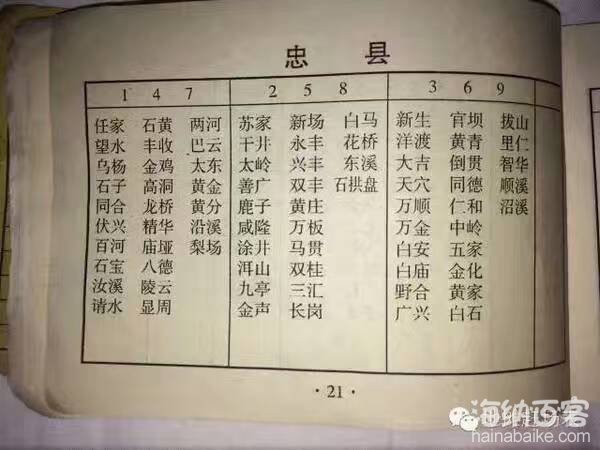 忠县
1 4 7 2 5 8 3 6 9
任家 石黄 两河 苏家 新场 白马 新生 官坝 拔山
望水 丰收 巴云 干井 永丰 花桥 洋渡 黄青 里仁
乌杨 金鸡 太东 太岭 兴丰 东溪 大吉 倒贯 智华
石子 高洞 黄金 善广 双丰 石拱盘 天穴 同德 顺溪
同合 龙桥 黄分 鹿子 黄庄 万顺 仁和 沼溪
伏兴 精华 沿溪 咸隆 万板 万金 中岭
百河 庙垭 梨场 涂井 马贯 白安 五家
石宝 八德 洱山 双桂 白庙 金化
汝溪 陵云 九亭 三汇 野合 黄家
请水 显周 金声 长岗 广兴 白石
·21·
海纳百客
hainabaike.com